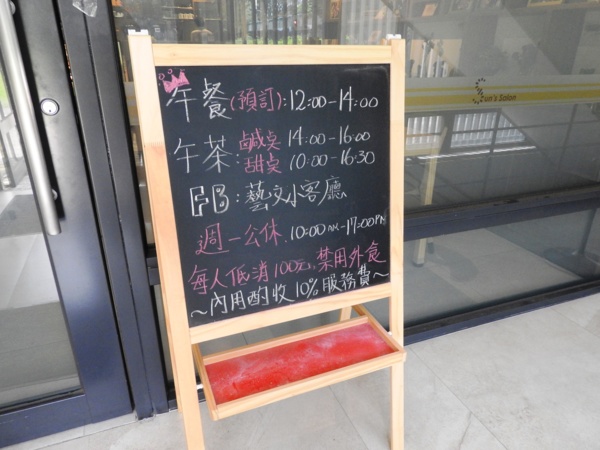 午餐(預訂):12:00-14:00
午茶:鹹桌 14:00-16:00
甜桌 10:00-16:30
FB:藝文小客廳
週一公休.10:00AM-17:00PM
每人低消100元,禁用外食
~內用酌收10%服務費~
Sun's Salon